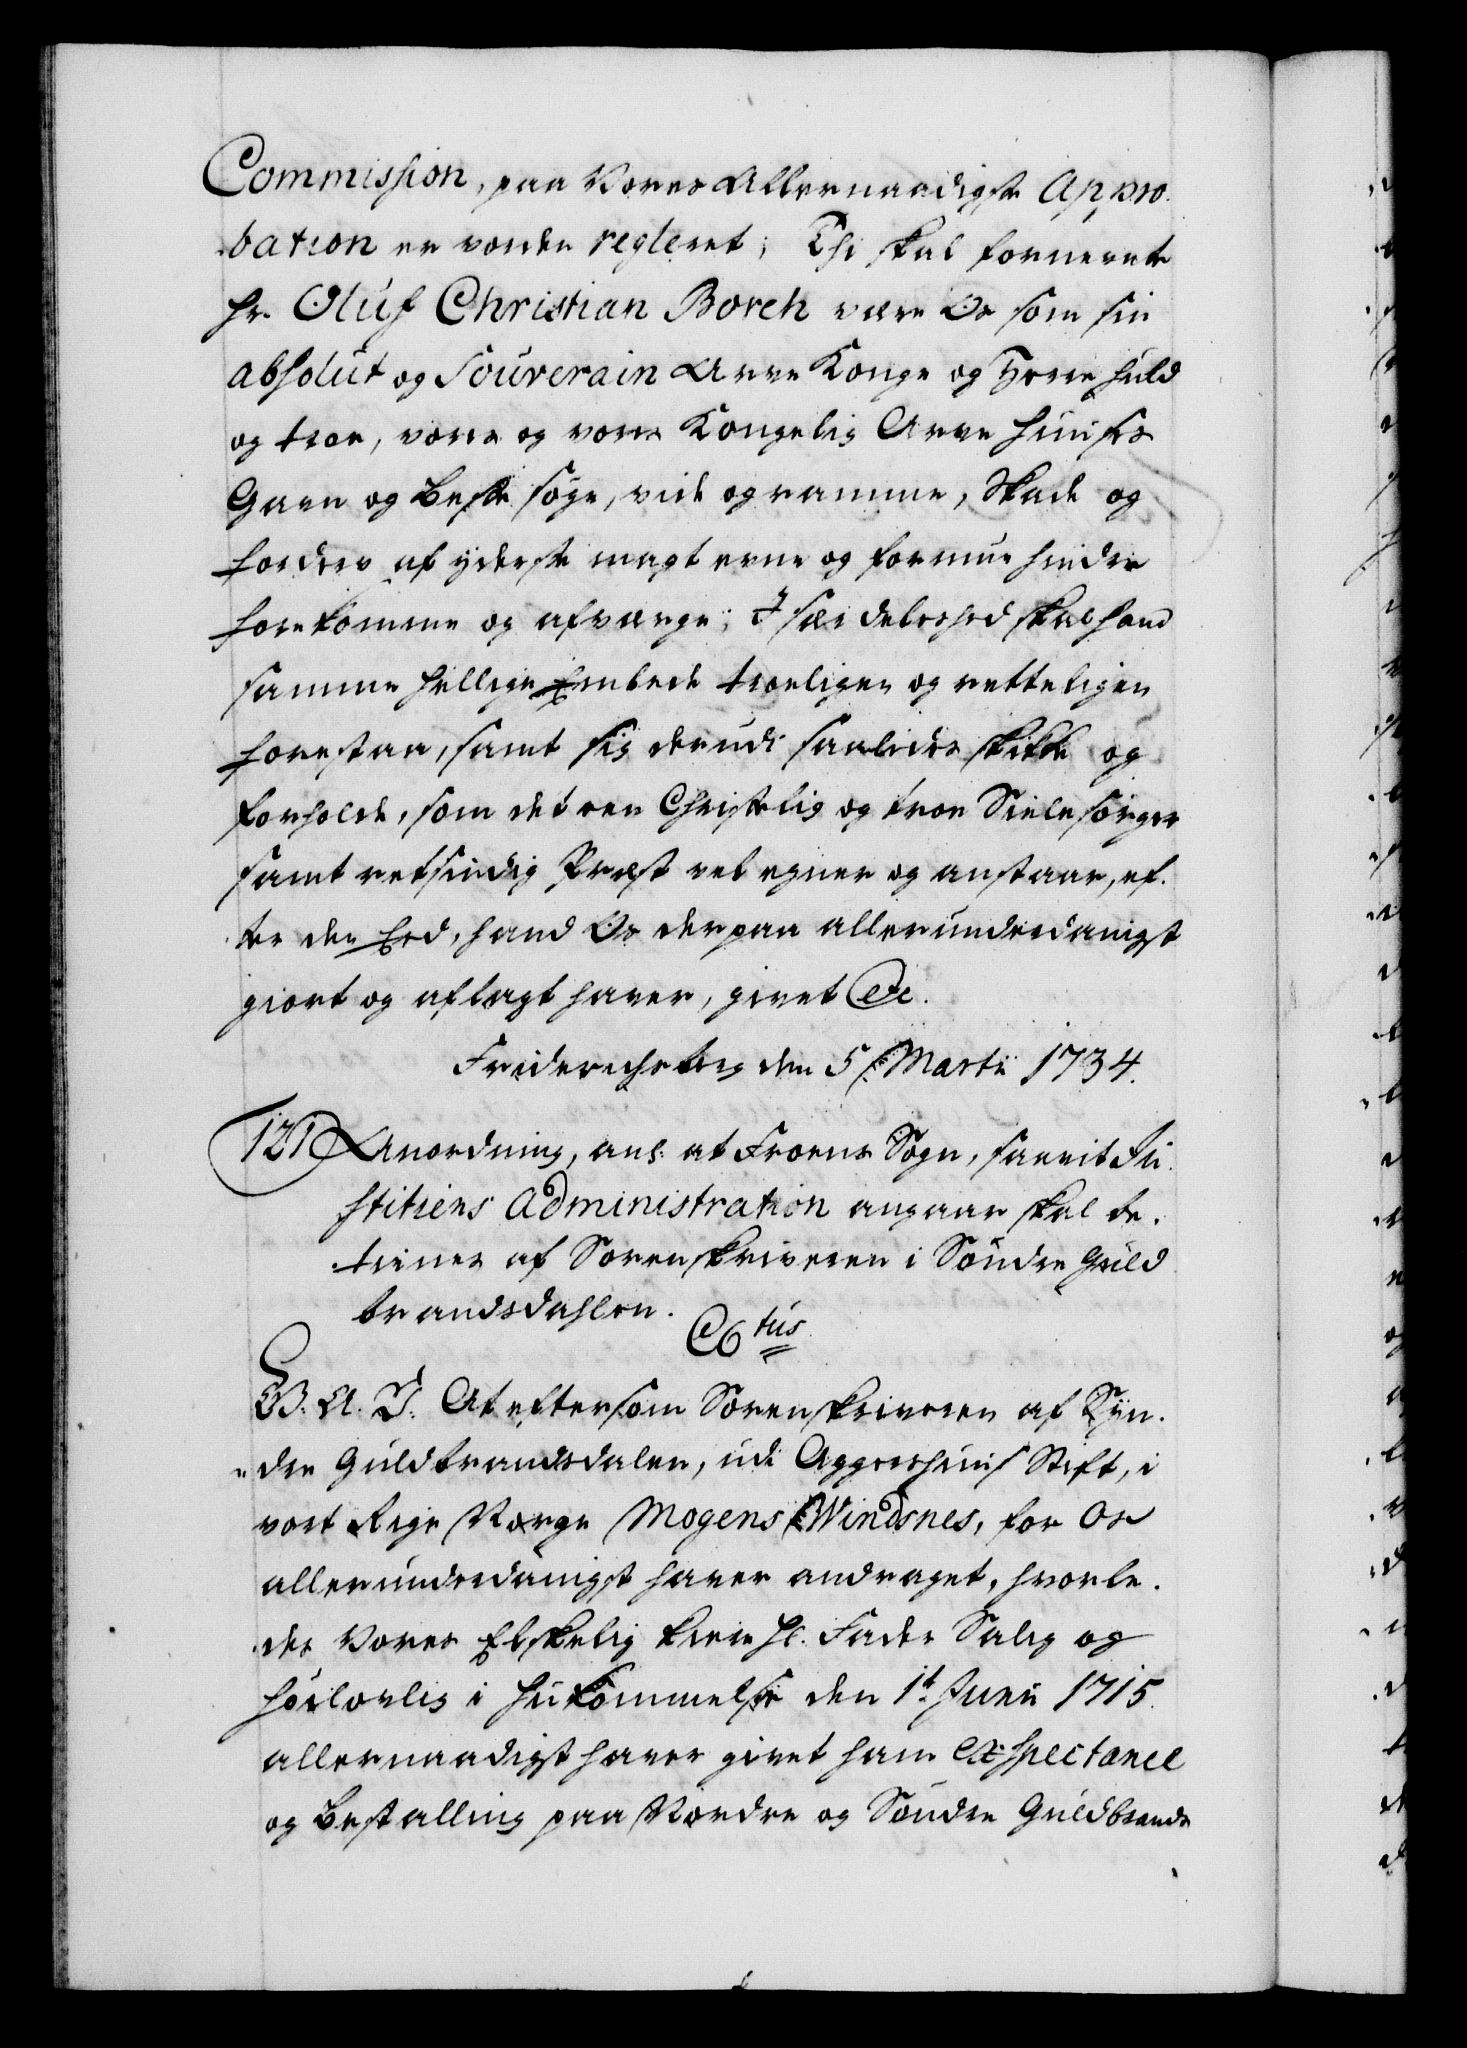 Commission, paa Vores Allernaadigste Appro-
bation er vorden regleret; Thi skal fornevnte
Hr. Oluf Christian Borch være Os som sin
absolut og Souverain Arve Konge og Herre huld
og troe, vores og vores Kongelig Arve Huuses
Gavn og Beste søge, vide og ramme, Skade og
fordærv af yderste magt evne og formue hindre
forekomme og afværge; I særdeleshed skal hand
samme hellige Embede troeligen og retteligen
forestaa, samt sig derudi saaledes skikke og
forholde, som det een Christelig og troe Siele sørger
samt retsindig Præst vel egner og anstaar, ef-
ter den Eed, hand Os derpaa allerunderdanigst
giort og aflagt haver, givet Etc.
Friderichsberg den 5 Martii 1734.
121 Anordning, anl. at Froens Sogn, saavit Ju-
stitiens Administration angaar skal be-
tienes af Sorenskriveren i Søndre Guld
brandsdahlen.
C6tus
G. A. V. At eftersom Sorenskriveren af Syn-
dre Guldbrandsdalen, udi Aggershuus Stift, i
vort Rige Norge Mogens Windsnes, for Os
allerunderdanigst haver andraget, hvorle-
des Vores Elskelig kiere Hr. Fader Salig og
høilovlig i Hukommelse den 1t Junii 1715
allernaadigst haver givet ham Exspectance
og Bestalling paa Nordre og Søndre Guldbrands